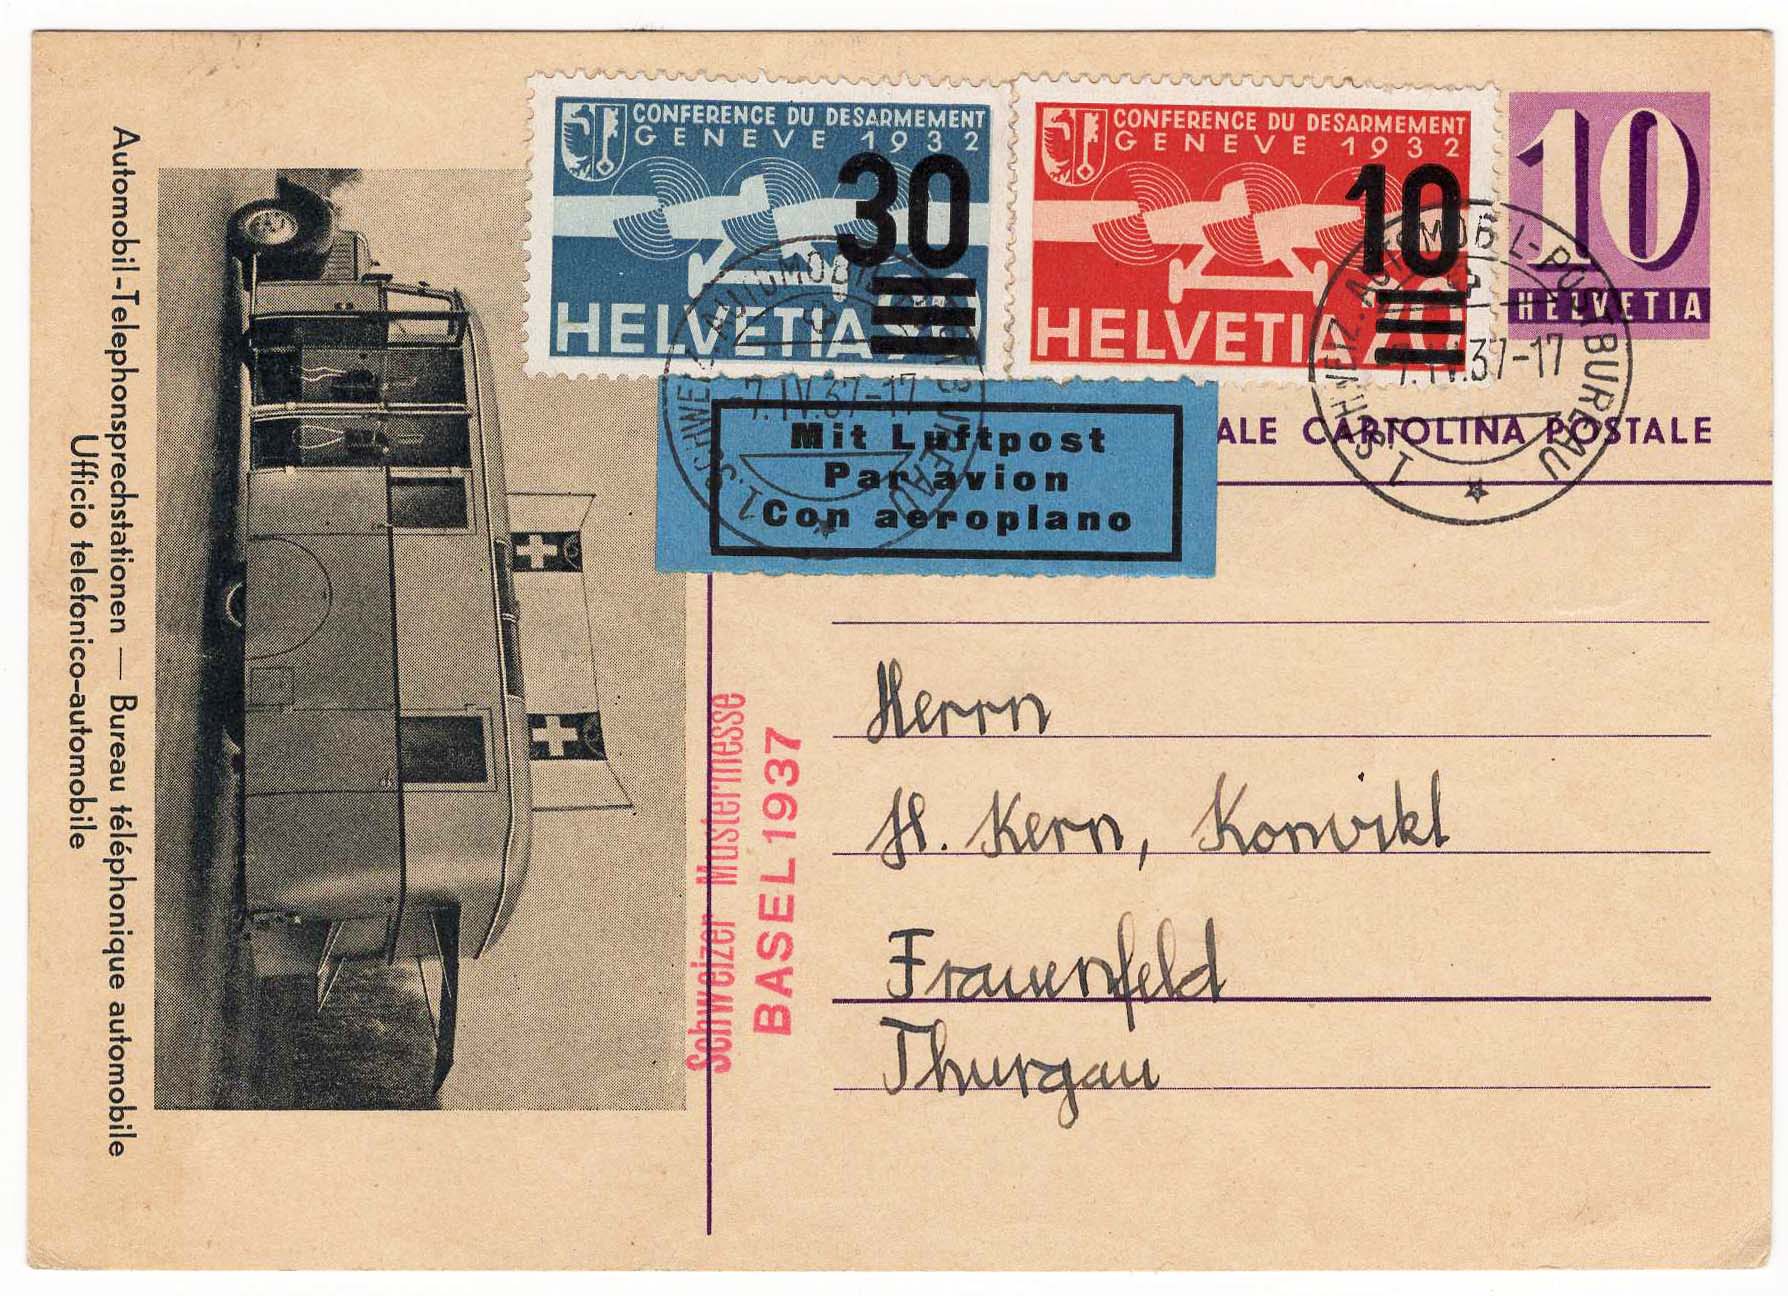 CONFERENCE DU DESARMEMENT
GENEVE 1932
30
HELVETIA
CONFERENCE DU DESARMEMENT
GENEVE 1932
10
HELVETIA
10
HELVETIA
1. SCHWEIZ. AUTOMOBIL-POSTBUREAU
-7.IV.37-17
1. SCHWEIZ. AUTOMOBIL-POSTBUREAU
-7.IV.37-17
ALE CARTOLINA POSTALE
Mit Luftpost
Par avion
Con aeroplano
Automobil-Telephonsprechstationen — Bureau téléphonique automobile
Ufficio telefonico-automobile
Schweizer Mustermesse
BASEL 1937
Herrn
H. Kern, Konvikt
Frauenfeld
Thurgau